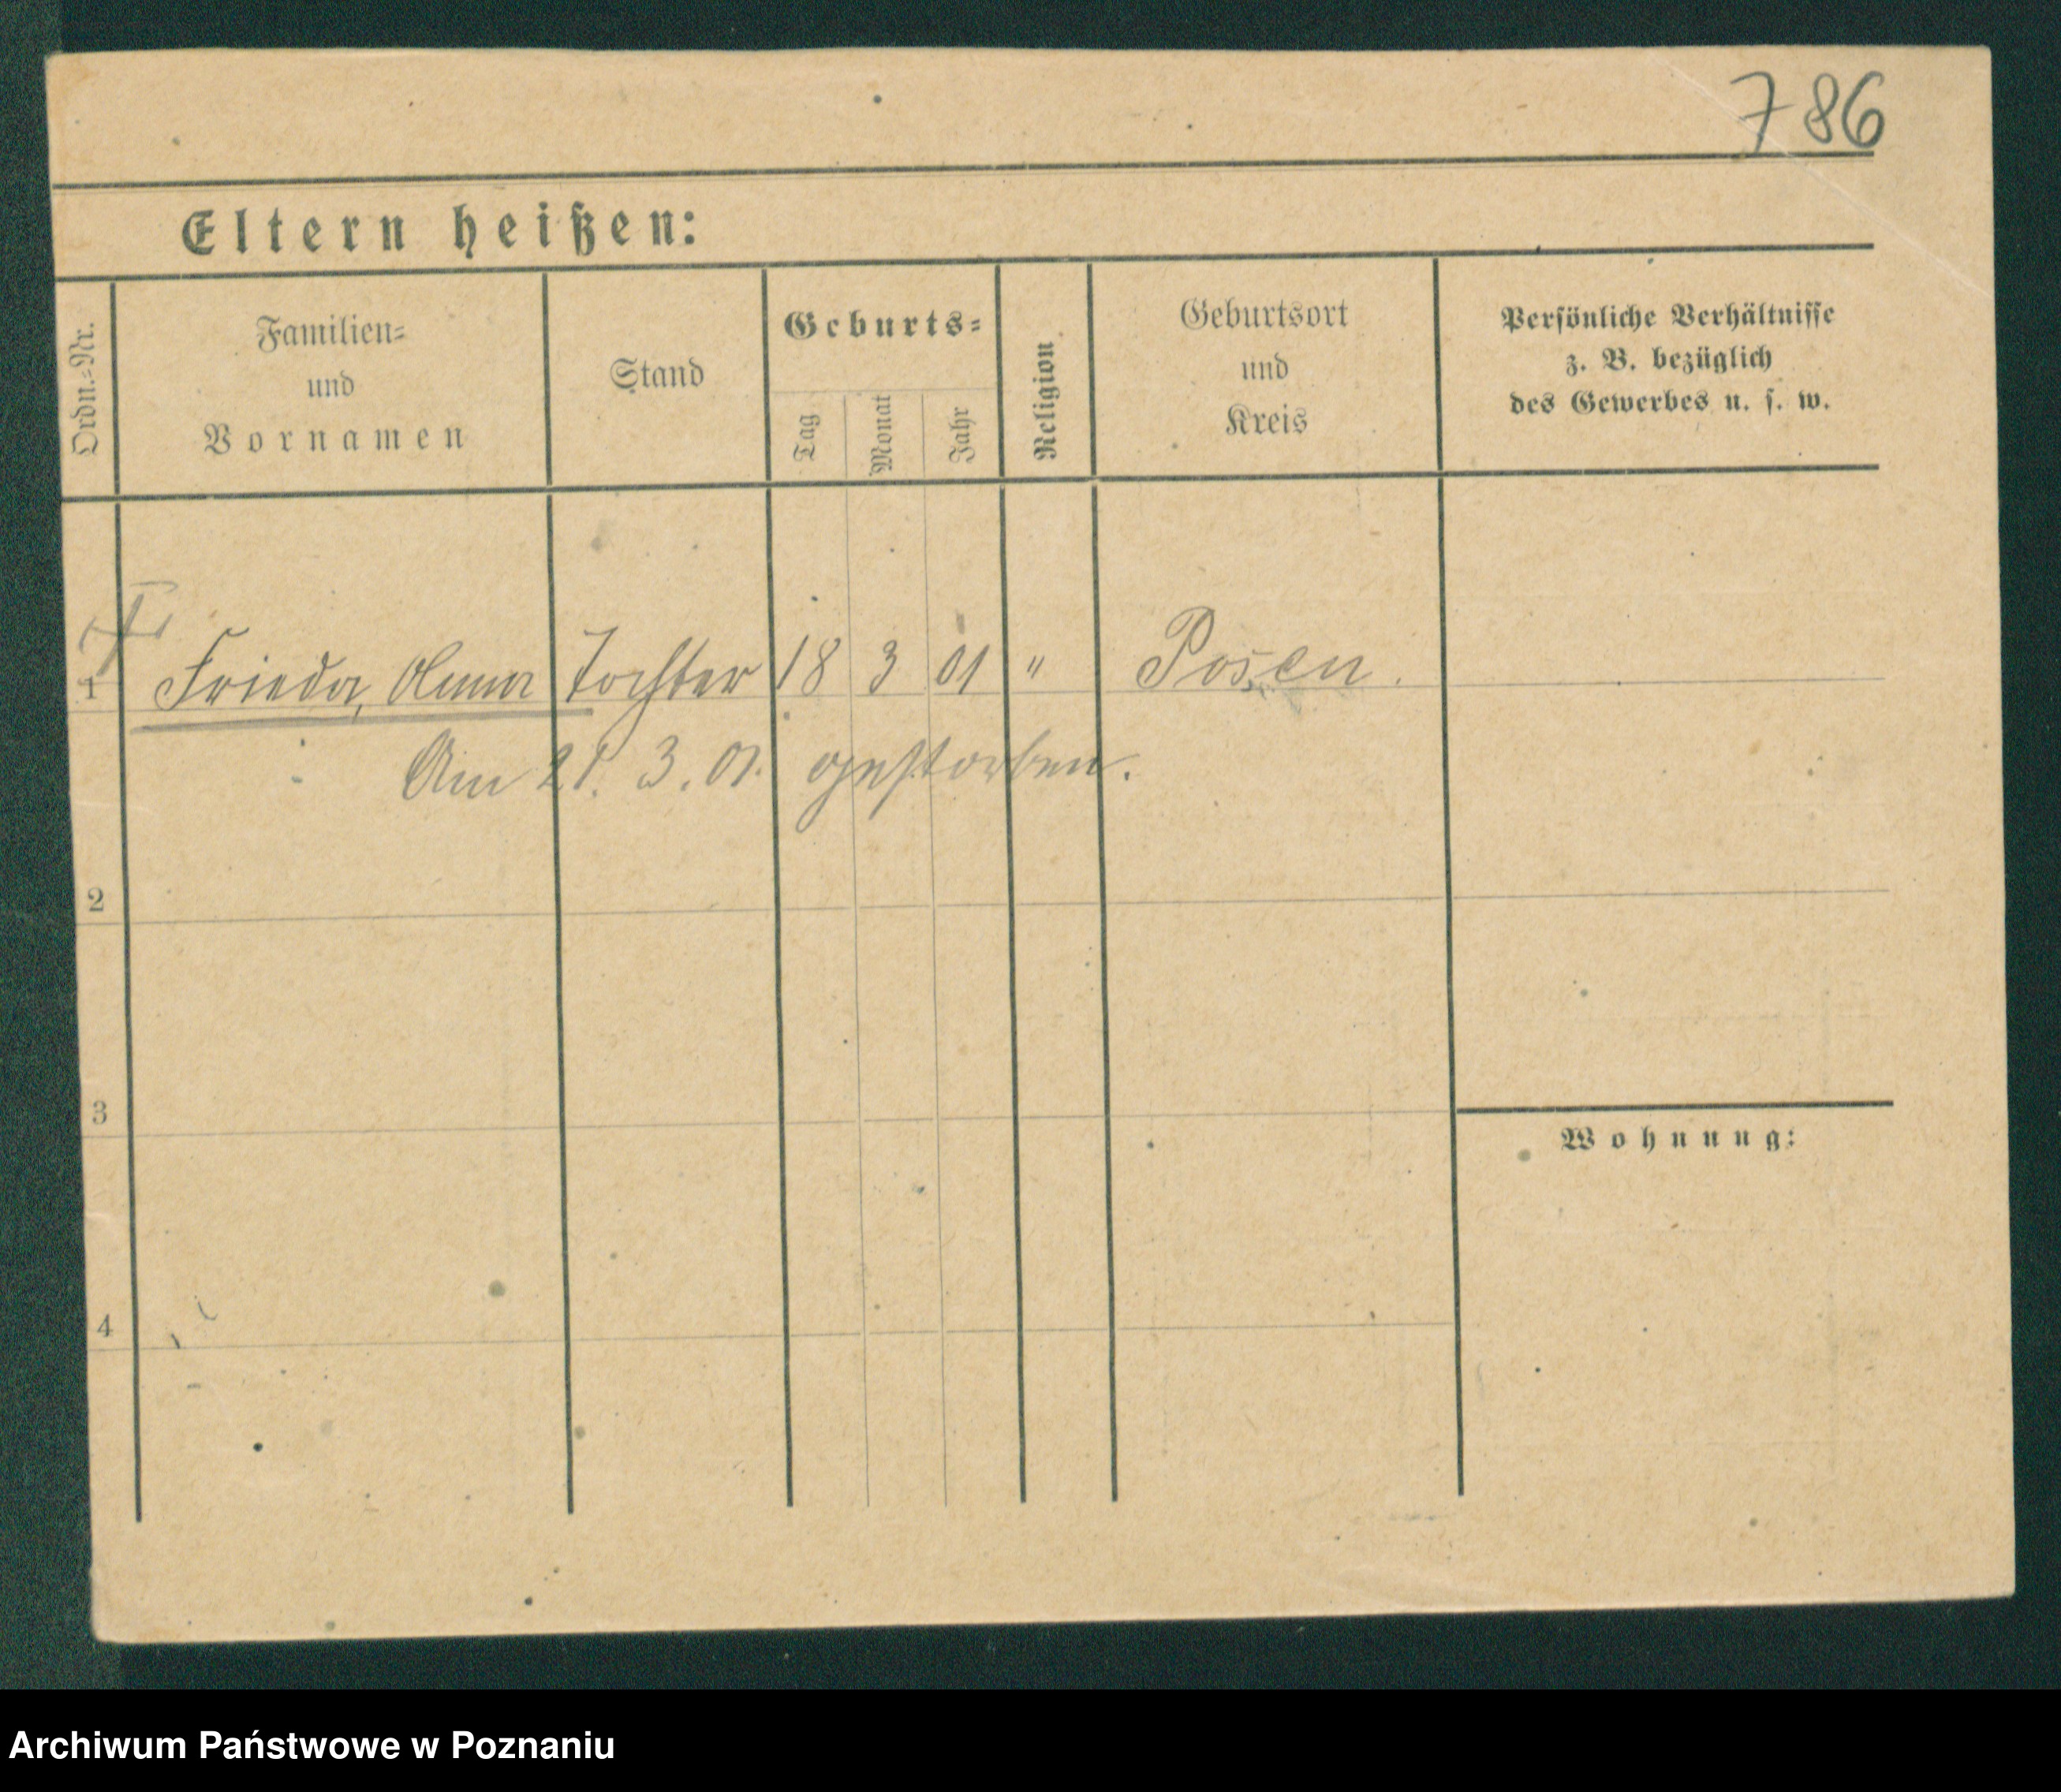 786
Eltern heißen:
Ordn.-Nr.
Familien-
und
Vornamen
Stand
Geburts-
Tag
Monat
Jahr
Religion
Geburtsort
und
Kreis
Persönliche Verhältnisse
z. B. bezüglich
des Gewerbes u. s. w.
1 Frieda, Anna Tochter 18 3 01 " Posen.
Am 21. 3. 01. gestorben.
2
3
Wohnung:
4
Archiwum Państwowe w Poznaniu